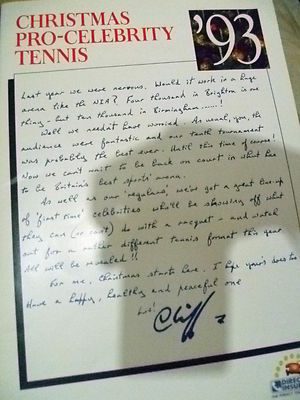 CHRISTMAS
PRO-CELEBRITY
TENNIS
'93
Last year we were nervous. Would it work in a huge
arena like the NIA? Four thousand in Brighton is one
thing - but ten thousand in Birmingham......!
Well we needn't have worried. As usual, you, the
audience were fantastic and our tenth tournament
was probably the best ever. Until this time of course!
Now we can't wait to be back on court in what has
to be Britain's best sports arena.
As well as our 'regulars', we've got a great line-up
of 'first time' celebrities who'll be showing off what
they can (or can't) do with a racquet - and watch
out for a rather different tennis format this year.
All will be revealed!!
For me, Christmas starts here. I hope yours does too
Have a happy, healthy and peaceful one
Cliff
DIRECT